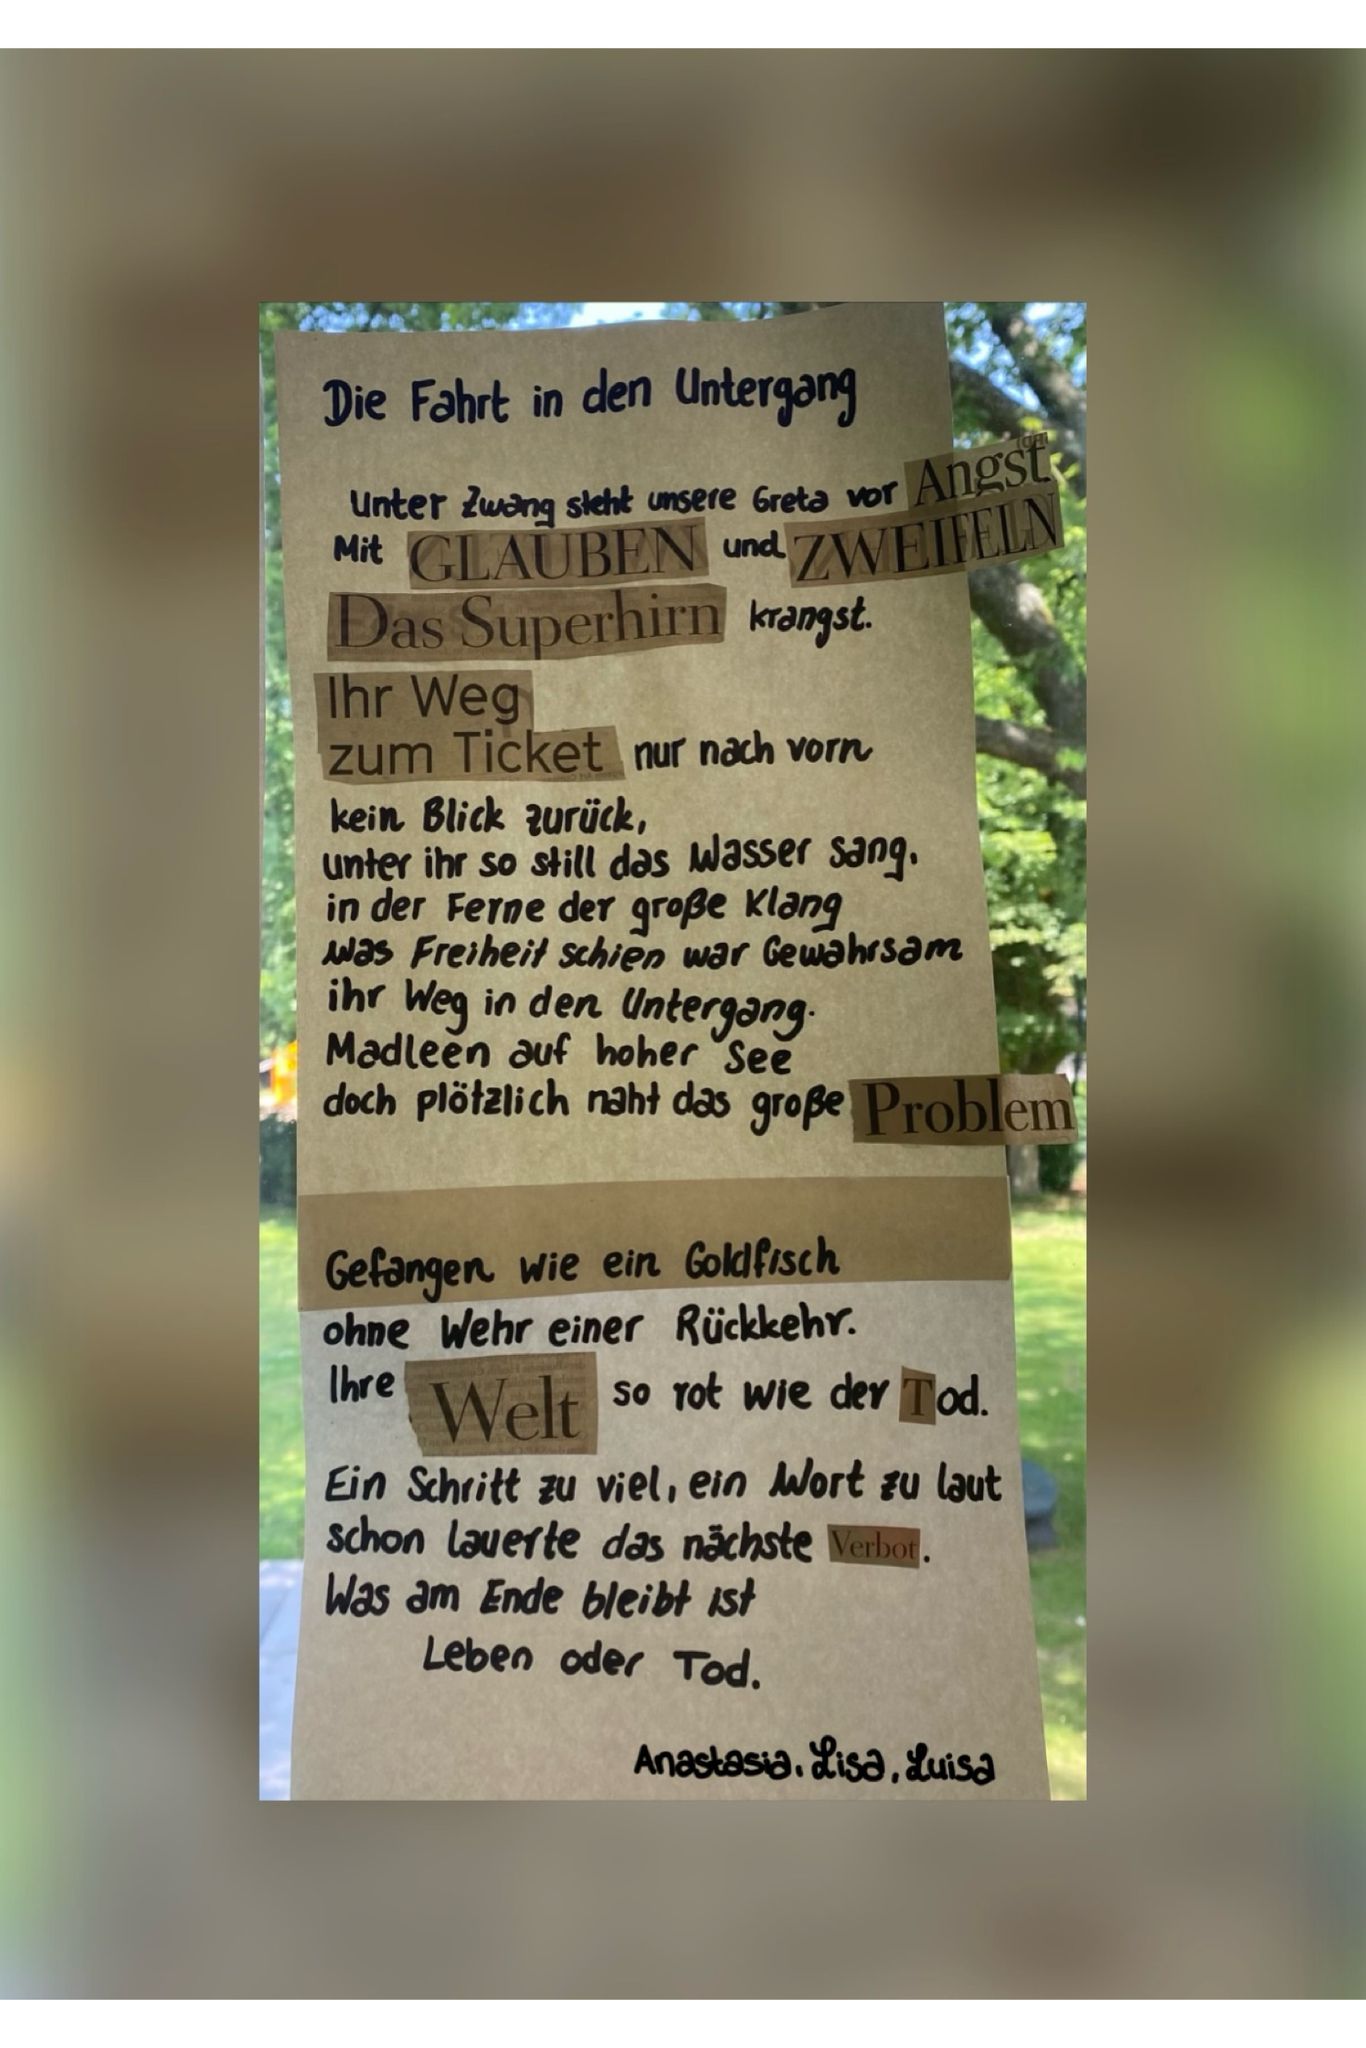 Die Fahrt in den Untergang
Unter Zwang steht unsere Greta vor Angst
Mit GLAUBEN und ZWEIFELN
Das Superhirn krangst.
Ihr Weg
zum Ticket nur nach vorn
kein Blick zurück,
unter ihr so still das Wasser sang.
in der Ferne der große Klang
was Freiheit schien war Gewahrsam
ihr Weg in den Untergang.
Madleen auf hoher See
doch plötzlich naht das große Problem
Gefangen wie ein Goldfisch
ohne Wehr einer Rückkehr.
Ihre Welt so rot wie der Tod.
Ein Schritt zu viel, ein Wort zu laut
schon lauerte das nächste Verbot.
Was am Ende bleibt ist
Leben oder Tod.
Anastasia, Lisa, Luisa